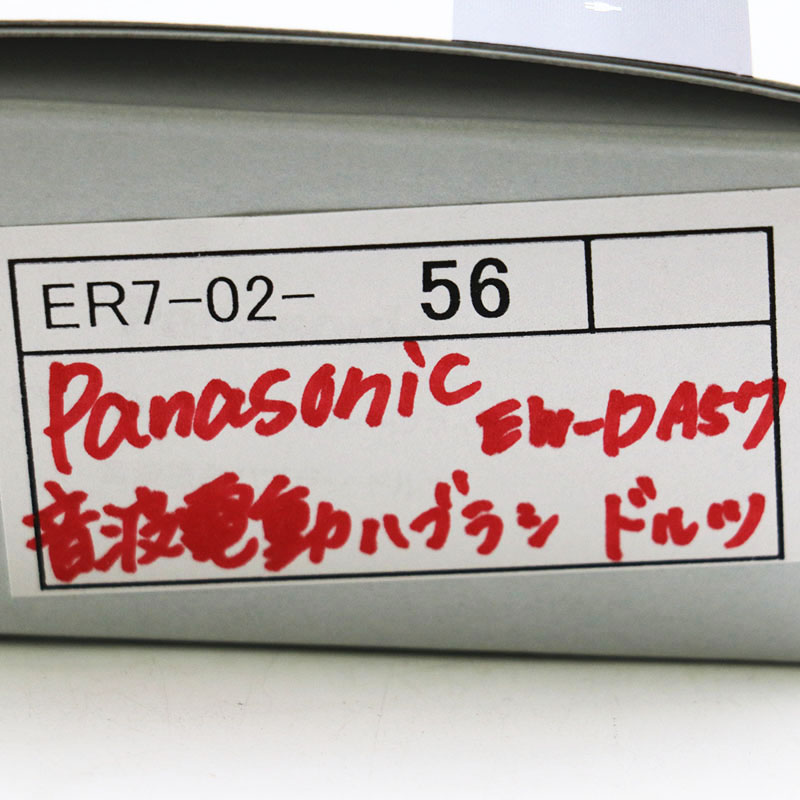 ER7-02- 56
Panasonic EW-DA57
音波電動ハブラシ ドルツ